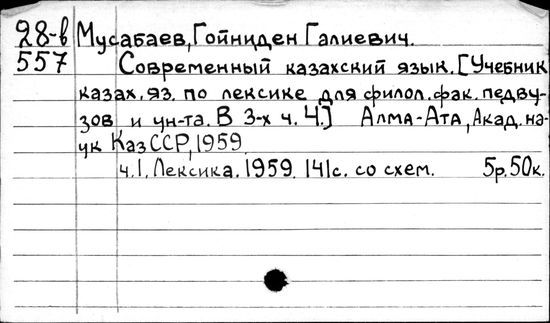 28-в Мусабаев, Гойниден Галиевич.
557 Современный казахский язык. [Учебник
казах. яз. по лексике для филол. фак. педву-
зов и ун-та. В 3-х ч. Ч.] Алма-Ата, Акад. на-
ук Каз ССР, 1959.
ч.1. Лексика. 1959. 141с. со схем. 5р. 50к.